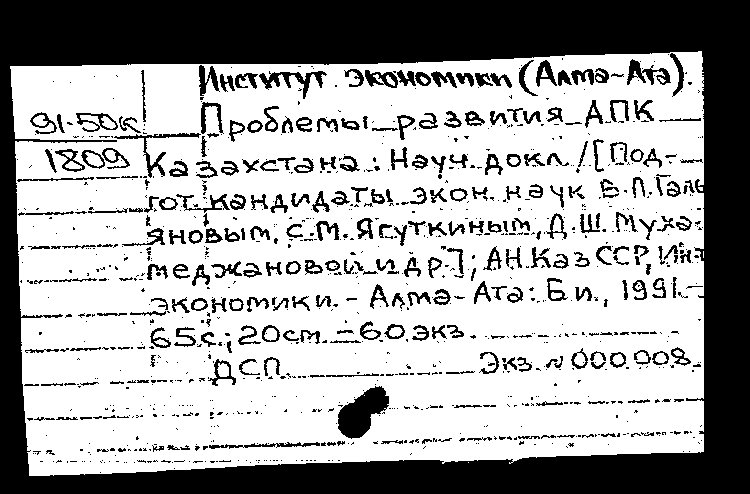 Институт экономики (Алма-Ата).
91-50к Проблемы развития АПК
1809 Казахстана: Науч. докл./[Под-
гот. кандидаты экон. наук В.Л.Галь
яновым, С.М. Ягуткиным, Д.Ш. Муха-
меджановой и др.]; АН КазССР, Ин-т
экономики. - Алма-Ата: Б.и., 1991.-
65с.; 20см - 60 экз.
ДСП Экз. № 000008